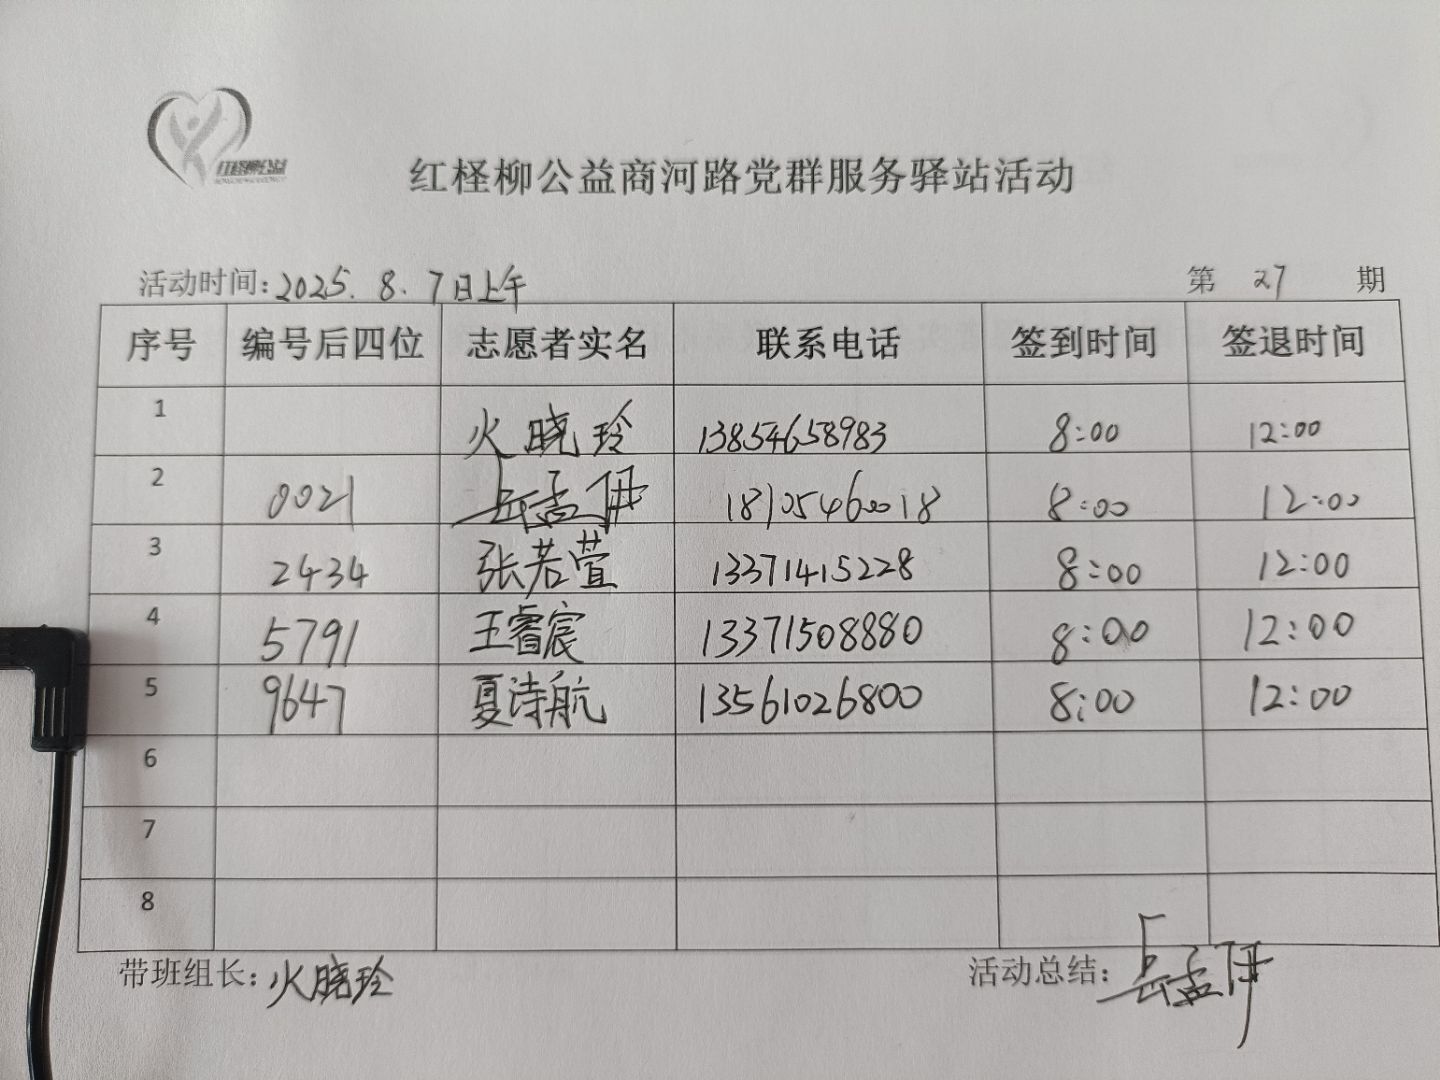 红柽柳公益
红柽柳公益商河路党群服务驿站活动
活动时间:2025.8.7日上午 第 27 期
序号 编号后四位 志愿者实名 联系电话 签到时间 签退时间
1 火晓玲 13854658983 8:00 12:00
2 0021 岳孟伊 18105460018 8:00 12:00
3 2434 张若萱 13371415228 8:00 12:00
4 5791 王睿宸 13371508880 8:00 12:00
5 9647 夏诗航 13561026800 8:00 12:00
6
7
8
带班组长:火晓玲 活动总结:岳孟伊